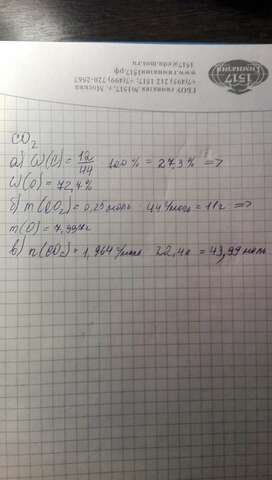 ГБОУ гимназия №1517, г. Москва
+7(499) 212 1517; +7(499) 720-2567
www.гимназия1517.рф
1517@edu.mos.ru
1517
ГИМНАЗИЯ
CO2
а) W(C) = 12/44 100% = 27,3% =>
W(O) = 72,4%
б) m(CO2) = 0,25 моль 44 г/моль = 11г =>
m(O) = 7,997г
в) n(CO2) = 1,964 г/моль 22,4л = 43,99 моль